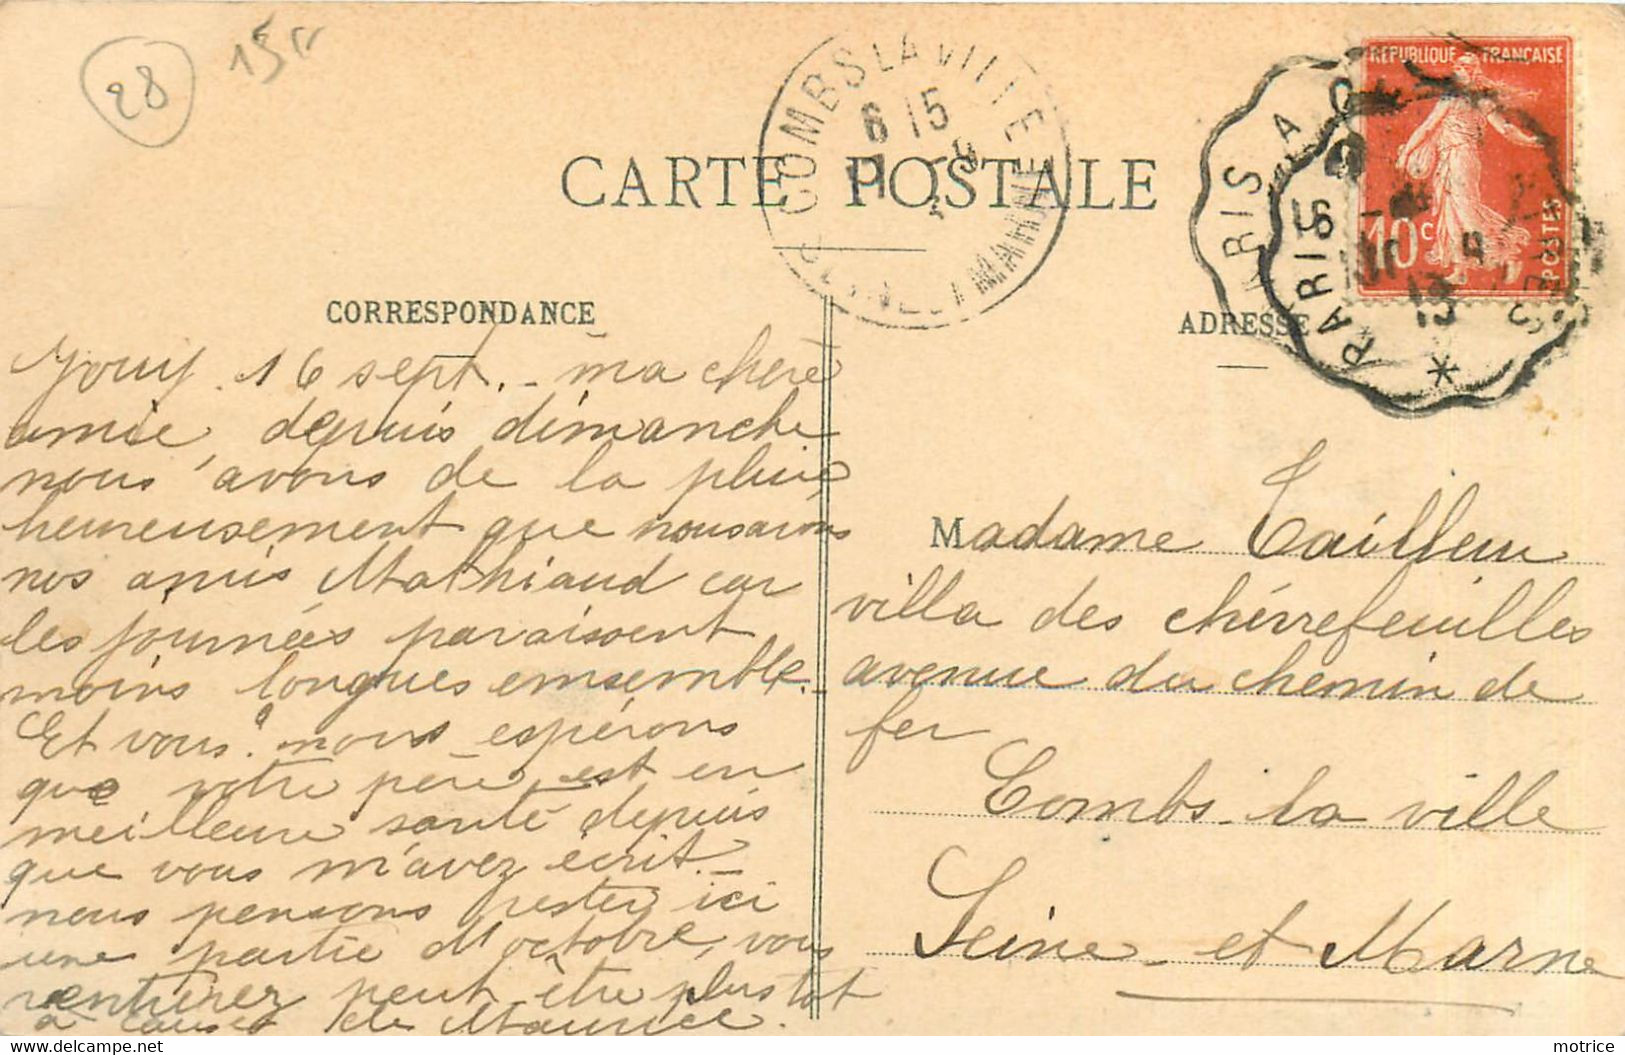 28
15
COMBS LA VILLE
6 15
SEINE ET MARNE
CARTE POSTALE
REPUBLIQUE FRANÇAISE
10c
POSTES
PARIS A
PARIS
CORRESPONDANCE
ADRESSE
Jouy. 16 sept. - ma chère
amie, depuis dimanche
nous avons de la pluie,
heureusement que nous avons
nos amis Mathiaud car
les journées paraissent
moins longues ensemble. -
Et vous? nous espérons
que votre père est en
meilleure santé depuis
que vous m'avez écrit. -
nous pensons rester ici
une partie d'octobre, vous
rentrerez peut-être plus tot
à cause de Maurice.
Madame Tailleur
villa des chévrefeuilles
avenue du chemin de
fer
Combs-la ville
Seine-et Marne
motrice